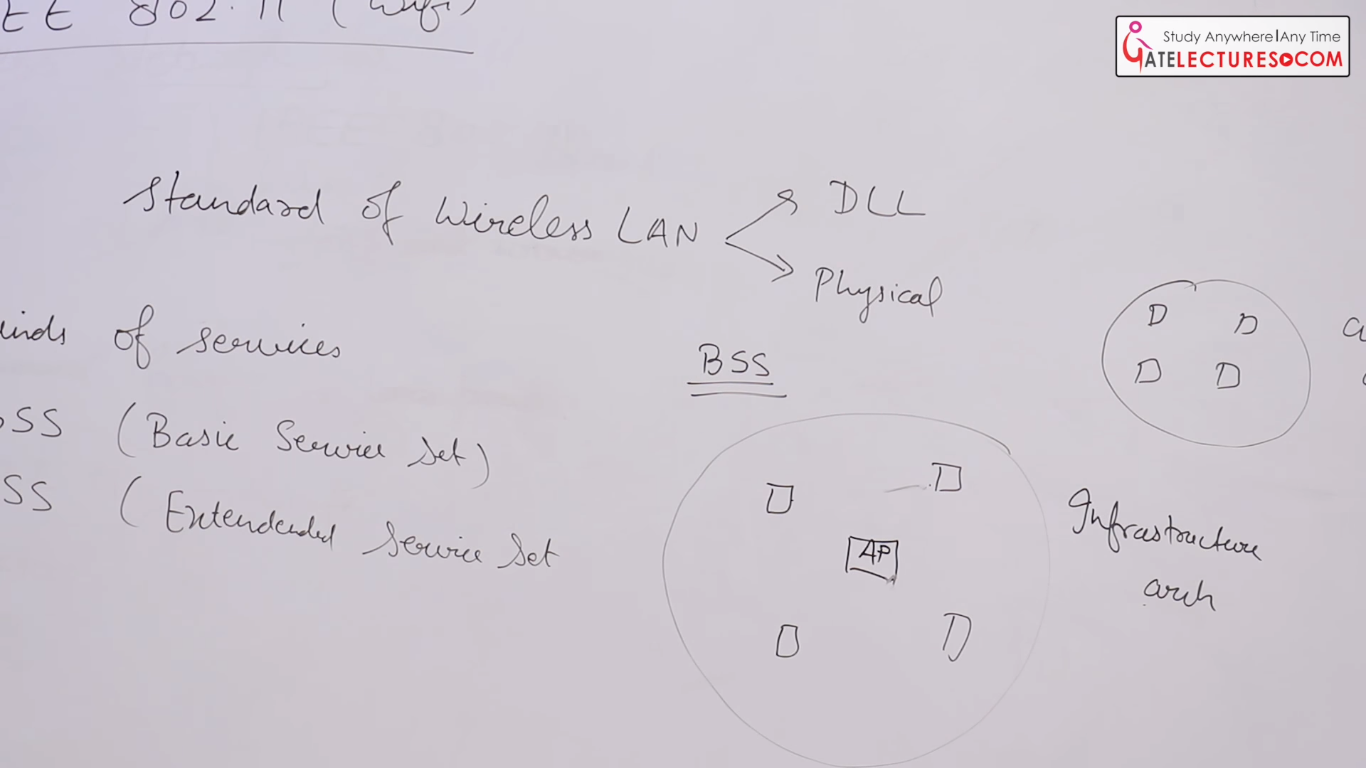 EE 802.11 (Wifi)
Study Anywhere|Any Time
GATELECTURES.COM
Standard of Wireless LAN
DLL
Physical
inds of services
SS (Basic Service Set)
SS (Extendended Service Set
BSS
D D
D D
D D
AP
D D
Infrastructure
arch